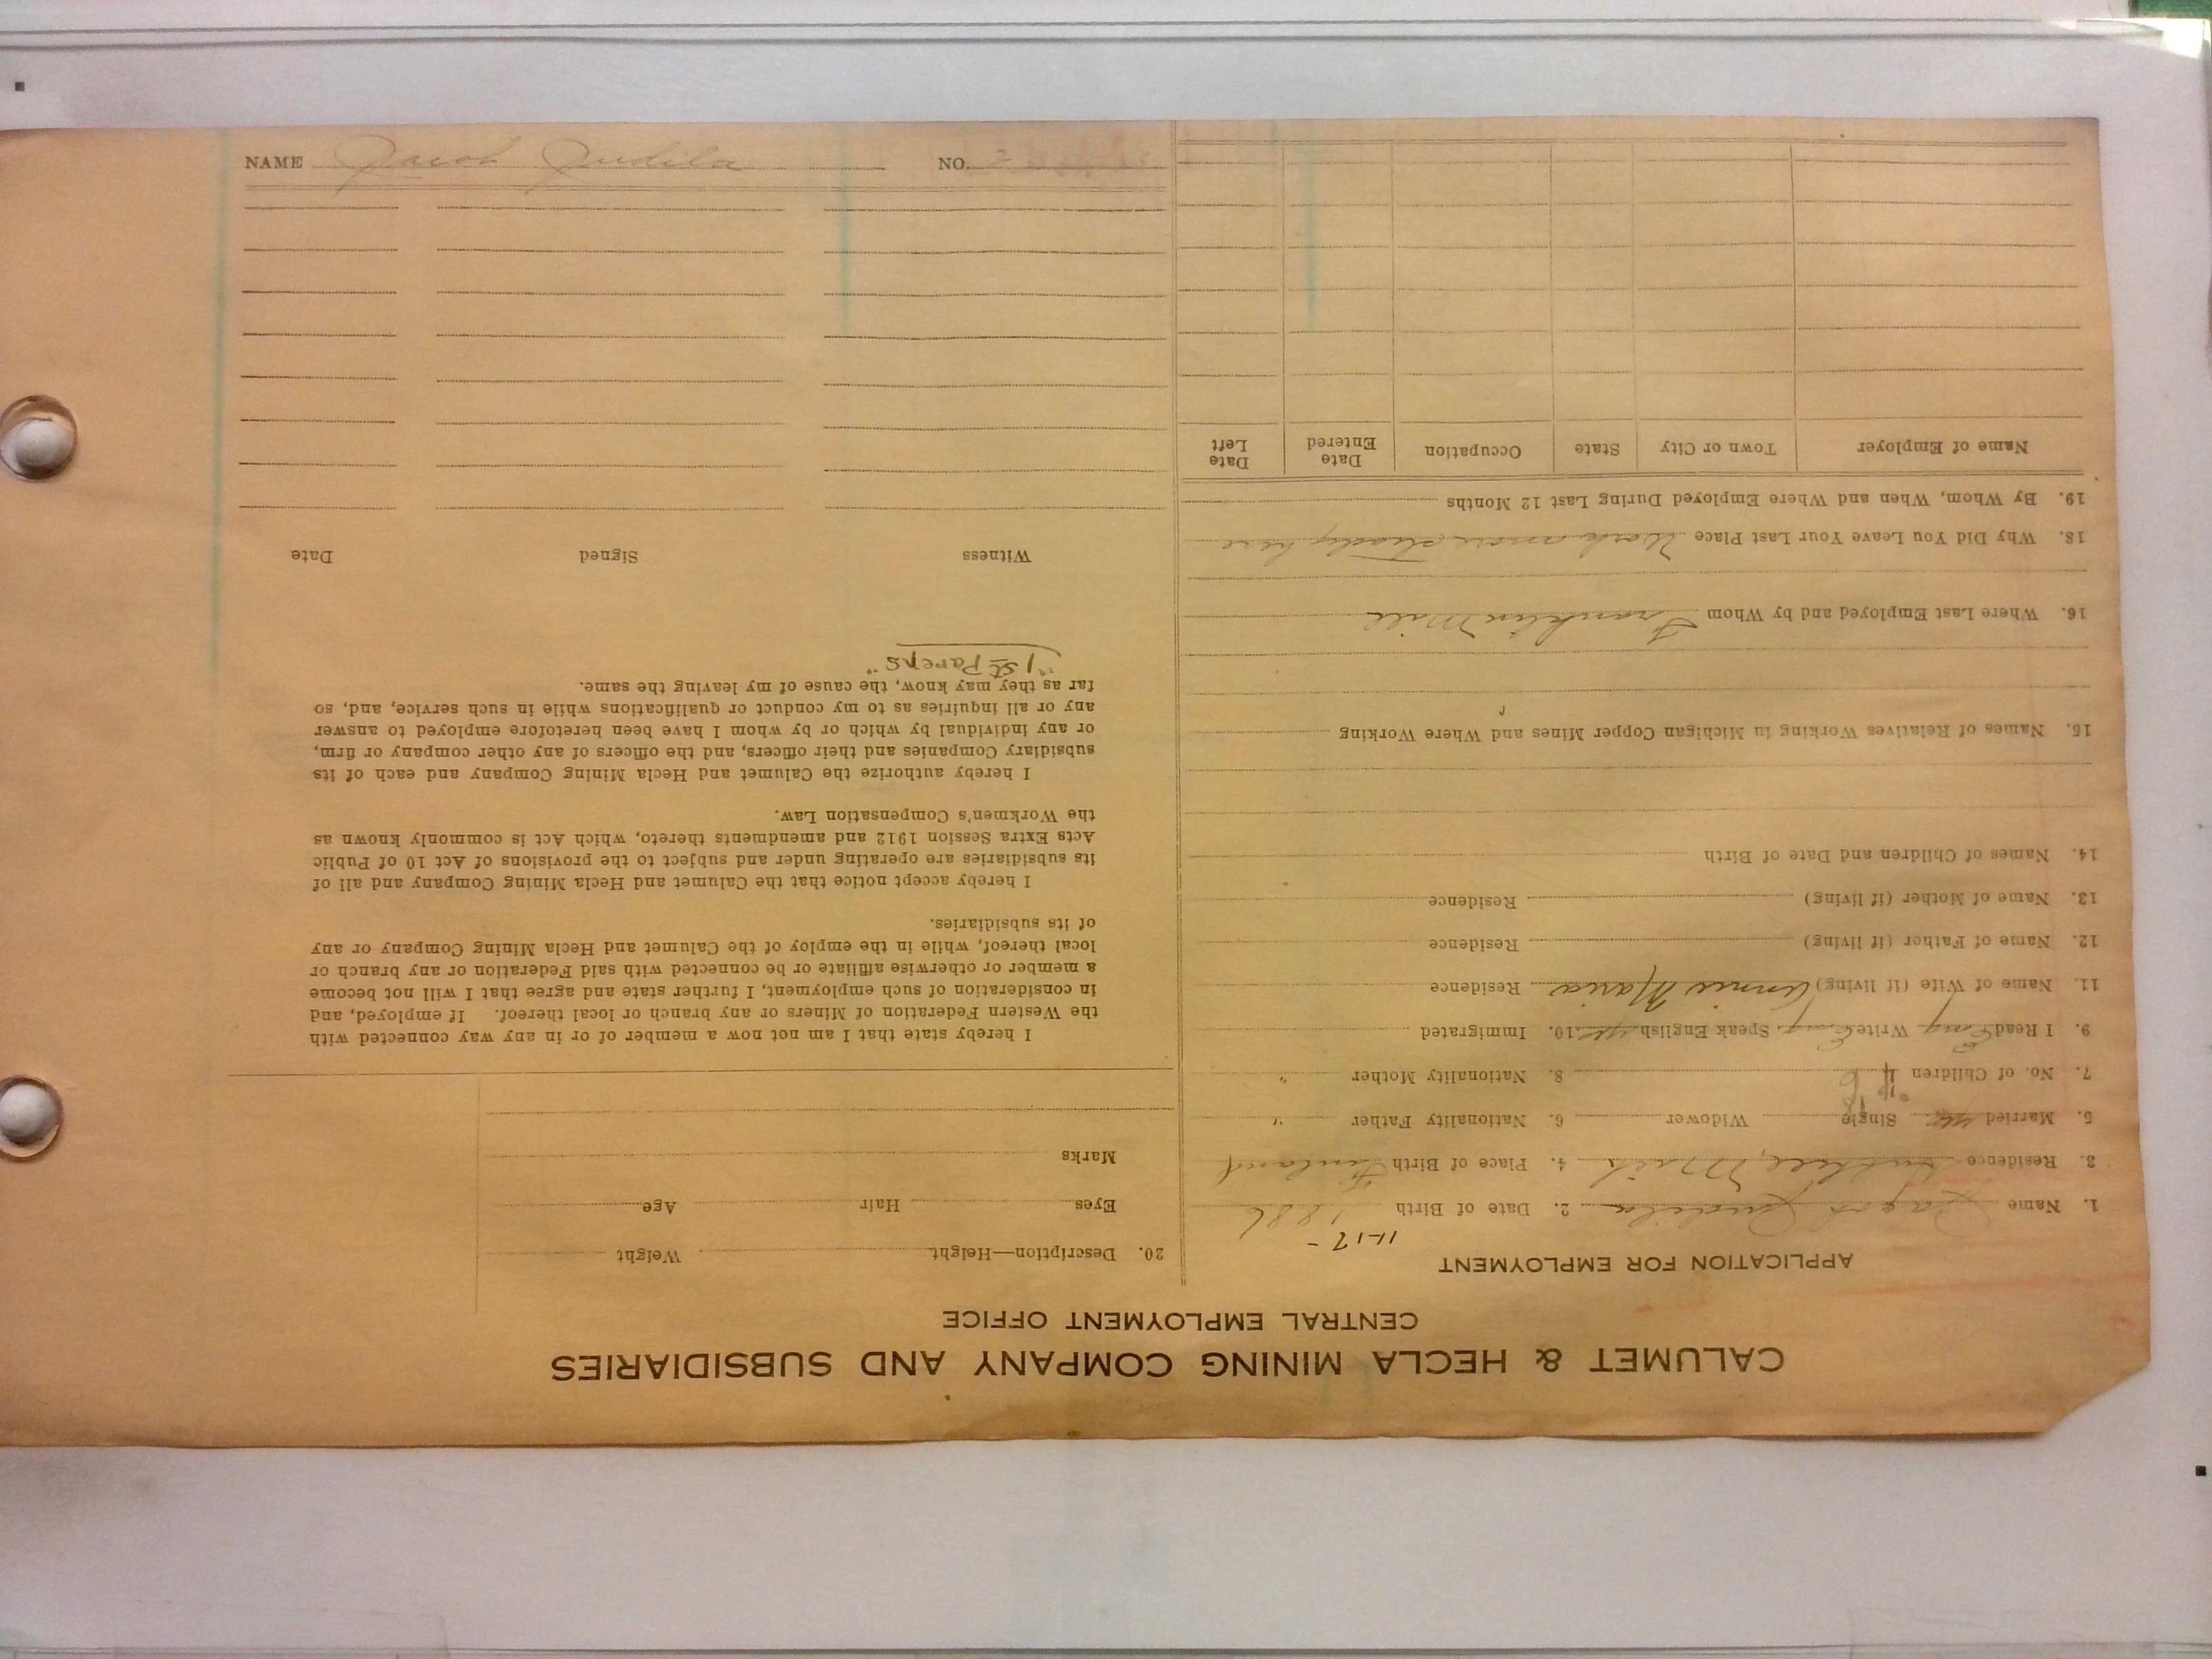 CALUMET & HECLA MINING COMPANY AND SUBSIDIARIES
CENTRAL EMPLOYMENT OFFICE
APPLICATION FOR EMPLOYMENT
11-17-
1. Name Jacob Judila 2. Date of Birth 1886
3. Residence Hubbell, Mich 4. Place of Birth Finland
5. Married yes Single Widower 6. Nationality Father "
7. No. of Children 8. Nationality Mother "
9. I Read Eng Write Eng Speak English yes 10. Immigrated
11. Name of Wife (if living) Annie Maria Residence
12. Name of Father (if living) Residence
13. Name of Mother (if living) Residence
14. Names of Children and Date of Birth
15. Names of Relatives Working in Michigan Copper Mines and Where Working
16. Where Last Employed and by Whom Franklin Mill
18. Why Did You Leave Your Last Place Work more steady here
19. By Whom, When and Where Employed During Last 12 Months
Name of Employer Town or City State Occupation Date Entered Date Left
20. Description—Height Weight
Eyes Hair Age
Marks
I hereby state that I am not now a member of or in any way connected with
the Western Federation of Miners or any branch or local thereof. If employed, and
in consideration of such employment, I further state and agree that I will not become
a member or otherwise affiliate or be connected with said Federation or any branch or
local thereof, while in the employ of the Calumet and Hecla Mining Company or any
of its subsidiaries.
I hereby accept notice that the Calumet and Hecla Mining Company and all of
its subsidiaries are operating under and subject to the provisions of Act 10 of Public
Acts Extra Session 1912 and amendments thereto, which Act is commonly known as
the Workmen's Compensation Law.
I hereby authorize the Calumet and Hecla Mining Company and each of its
subsidiary Companies and their officers, and the officers of any other company or firm,
or any individual by which or by whom I have been heretofore employed to answer
any or all inquiries as to my conduct or qualifications while in such service, and, so
far as they may know, the cause of my leaving the same.
"1st Papers"
Witness Signed Date
NAME Jacob Judila NO.